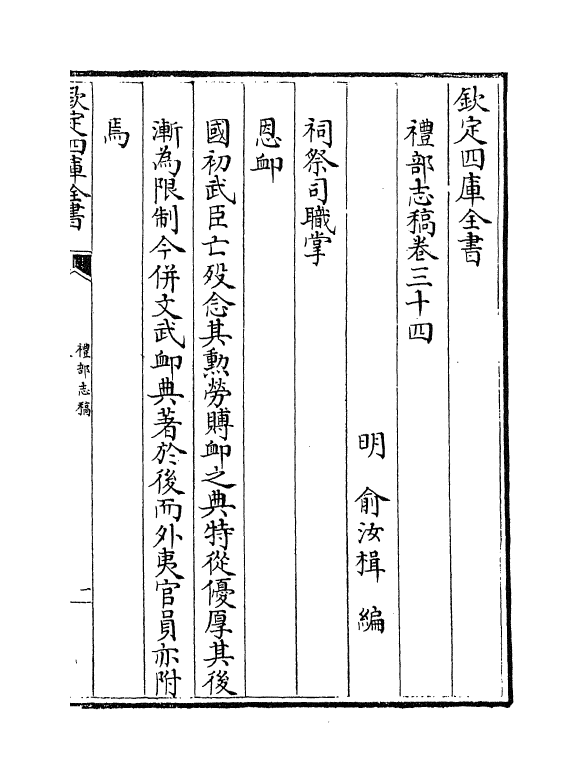 欽定四庫全書
禮部志稿卷三十四
明 俞汝楫 編
祠祭司職掌
恩䘏
國初武臣亡歿念其勲勞賻䘏之典特從優厚其後
漸為限制今併文武䘏典著於後而外夷官員亦附
焉
欽定四庫全書
禮部志稿
一